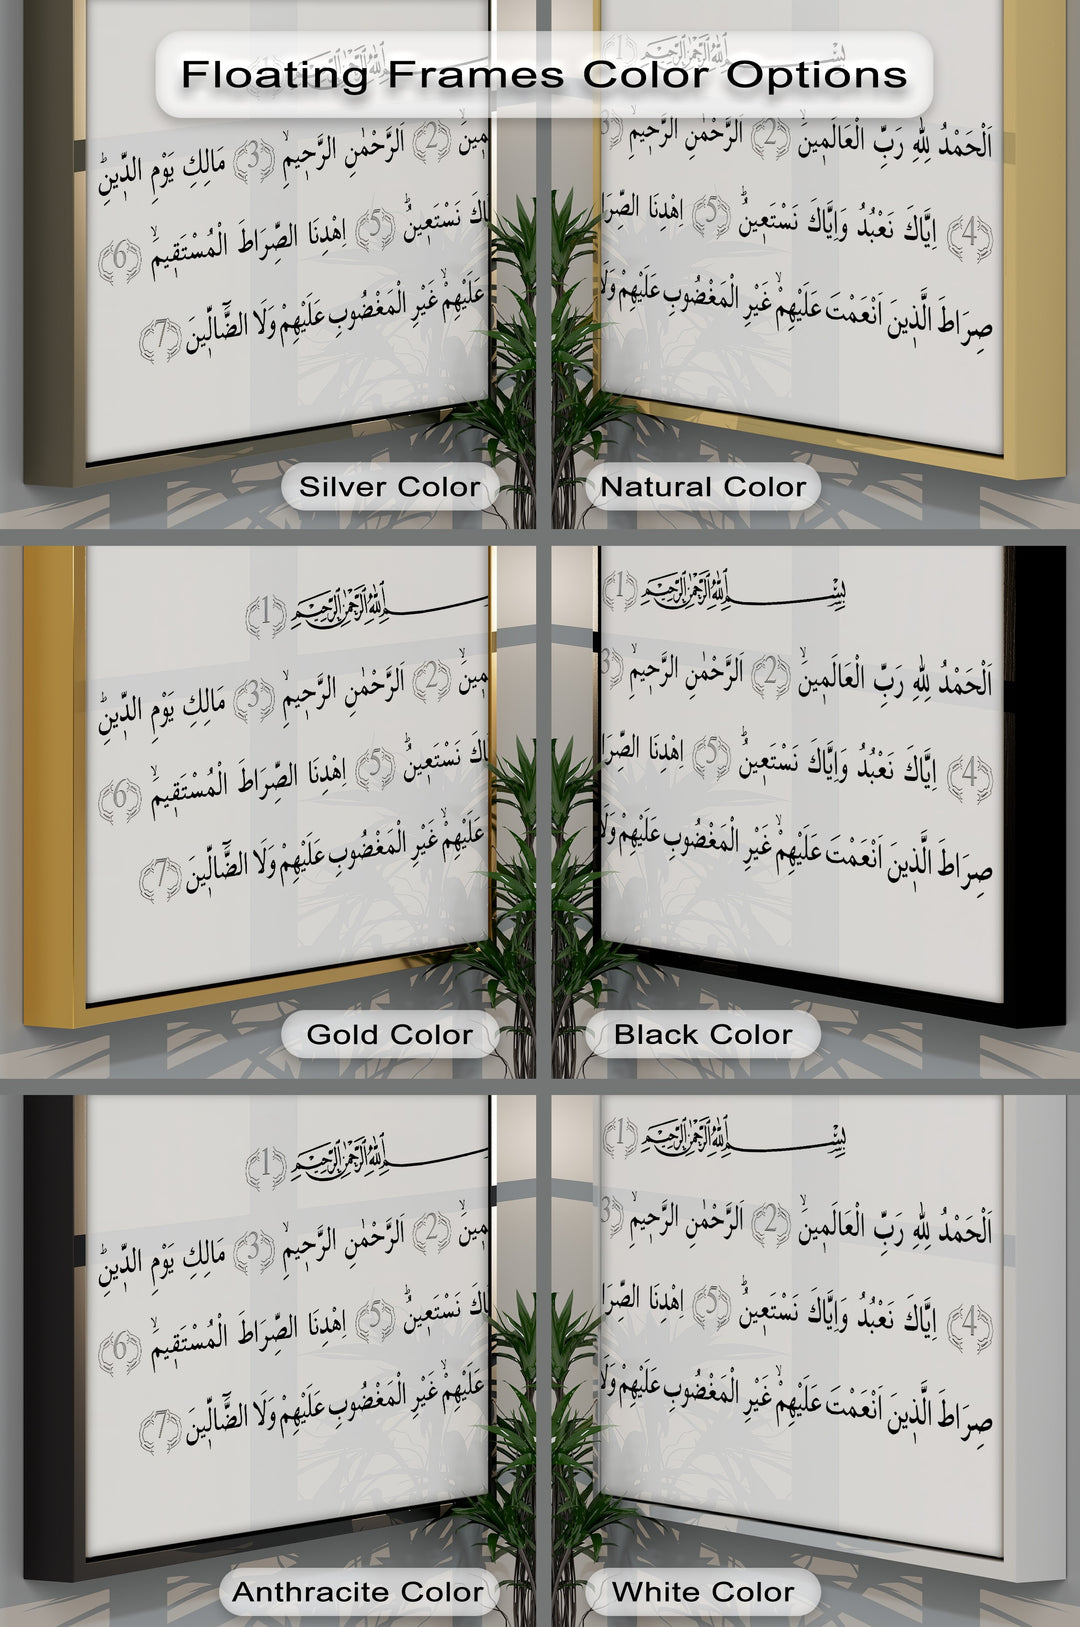 Floating Frames Color Options
اللّٰهِ الرَّحْمٰنِ الرَّحِيمِ
(2) اَلرَّحْمٰنِ الرَّحِيمِۙ (3) مَالِكِ يَوْمِ الدِّينِۜ
نَسْتَعِينُۜ (5) اِهْدِنَا الصِّرَاطَ الْمُسْتَقِيمَۙ (6)
عَلَيْهِمْۙ غَيْرِ الْمَغْضُوبِ عَلَيْهِمْ وَلَا الضَّٓالِّينَ (7)
Silver Color
بِسْمِ اللّٰهِ الرَّحْمٰنِ الرَّحِيمِ (1)
اَلْحَمْدُ لِلّٰهِ رَبِّ الْعَالَمِينَۙ (2) اَلرَّحْمٰنِ الرَّحِيمِۙ (3)
(4) اِيَّاكَ نَعْبُدُ وَاِيَّاكَ نَسْتَعِينُۜ (5) اِهْدِنَا
صِرَاطَ الَّذِينَ اَنْعَمْتَ عَلَيْهِمْۙ غَيْرِ الْمَغْضُوبِ عَلَيْهِمْ وَلَا
Natural Color
اللّٰهِ الرَّحْمٰنِ الرَّحِيمِ (1)
(2) اَلرَّحْمٰنِ الرَّحِيمِۙ (3) مَالِكِ يَوْمِ الدِّينِۜ
نَسْتَعِينُۜ (5) اِهْدِنَا الصِّرَاطَ الْمُسْتَقِيمَۙ (6)
عَلَيْهِمْۙ غَيْرِ الْمَغْضُوبِ عَلَيْهِمْ وَلَا الضَّٓالِّينَ (7)
Gold Color
بِسْمِ اللّٰهِ الرَّحْمٰنِ الرَّحِيمِ (1)
اَلْحَمْدُ لِلّٰهِ رَبِّ الْعَالَمِينَۙ (2) اَلرَّحْمٰنِ الرَّحِيمِۙ (3)
(4) اِيَّاكَ نَعْبُدُ وَاِيَّاكَ نَسْتَعِينُۜ (5) اِهْدِنَا
صِرَاطَ الَّذِينَ اَنْعَمْتَ عَلَيْهِمْۙ غَيْرِ الْمَغْضُوبِ عَلَيْهِمْ وَلَا
Black Color
اللّٰهِ الرَّحْمٰنِ الرَّحِيمِ (1)
(2) اَلرَّحْمٰنِ الرَّحِيمِۙ (3) مَالِكِ يَوْمِ الدِّينِۜ
نَسْتَعِينُۜ (5) اِهْدِنَا الصِّرَاطَ الْمُسْتَقِيمَۙ (6)
عَلَيْهِمْۙ غَيْرِ الْمَغْضُوبِ عَلَيْهِمْ وَلَا الضَّٓالِّينَ (7)
Anthracite Color
بِسْمِ اللّٰهِ الرَّحْمٰنِ الرَّحِيمِ (1)
اَلْحَمْدُ لِلّٰهِ رَبِّ الْعَالَمِينَۙ (2) اَلرَّحْمٰنِ الرَّحِيمِۙ (3)
(4) اِيَّاكَ نَعْبُدُ وَاِيَّاكَ نَسْتَعِينُۜ (5) اِهْدِنَا
صِرَاطَ الَّذِينَ اَنْعَمْتَ عَلَيْهِمْۙ غَيْرِ الْمَغْضُوبِ عَلَيْهِمْ وَلَا
White Color